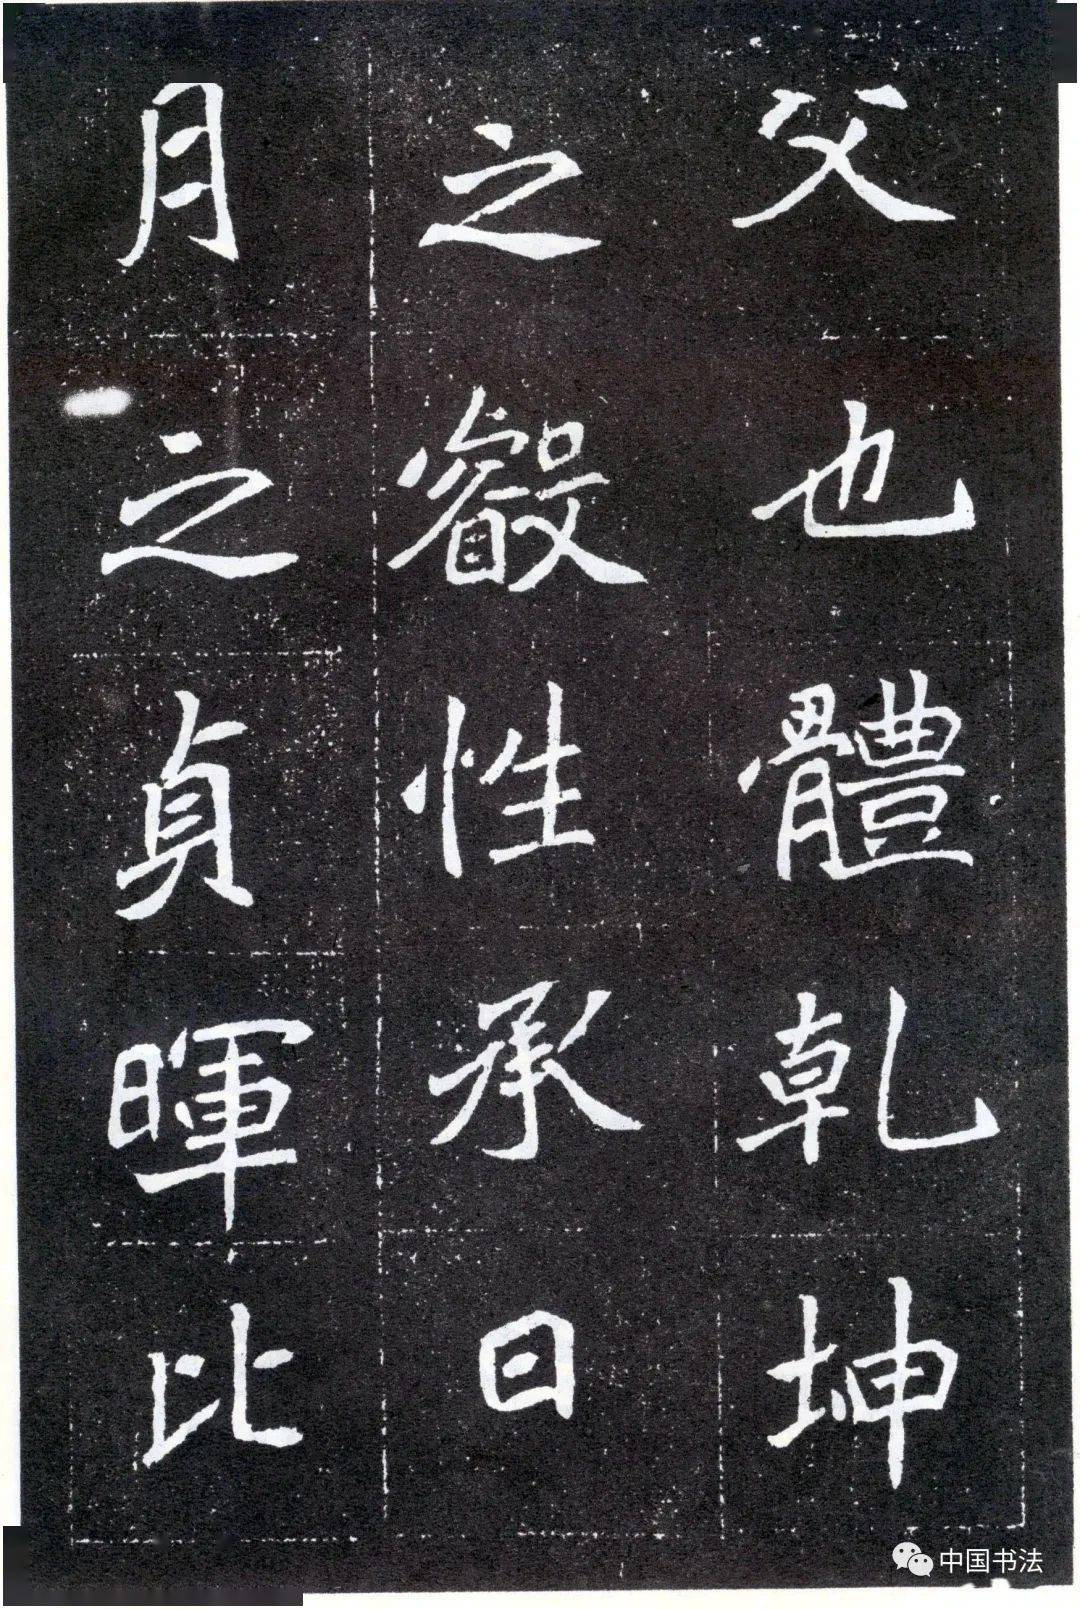 父也體乾坤
之叡性承日
月之貞暉比
中国书法